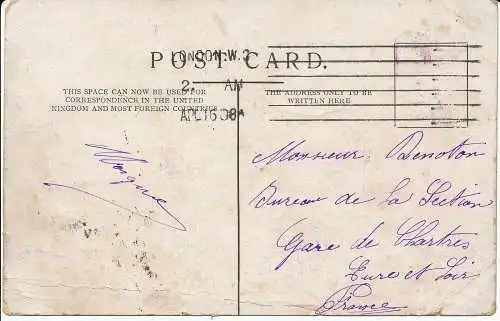 POST CARD.
LONDON.W.2
2. AM
APL 16 08
THIS SPACE CAN NOW BE USED FOR
CORRESPONDENCE IN THE UNITED
KINGDOM AND MOST FOREIGN COUNTRIES
THE ADDRESS ONLY TO BE
WRITTEN HERE
Monsieur Denoton
Bureau de la Section
Gare de Chartres
Eure et Loir
France